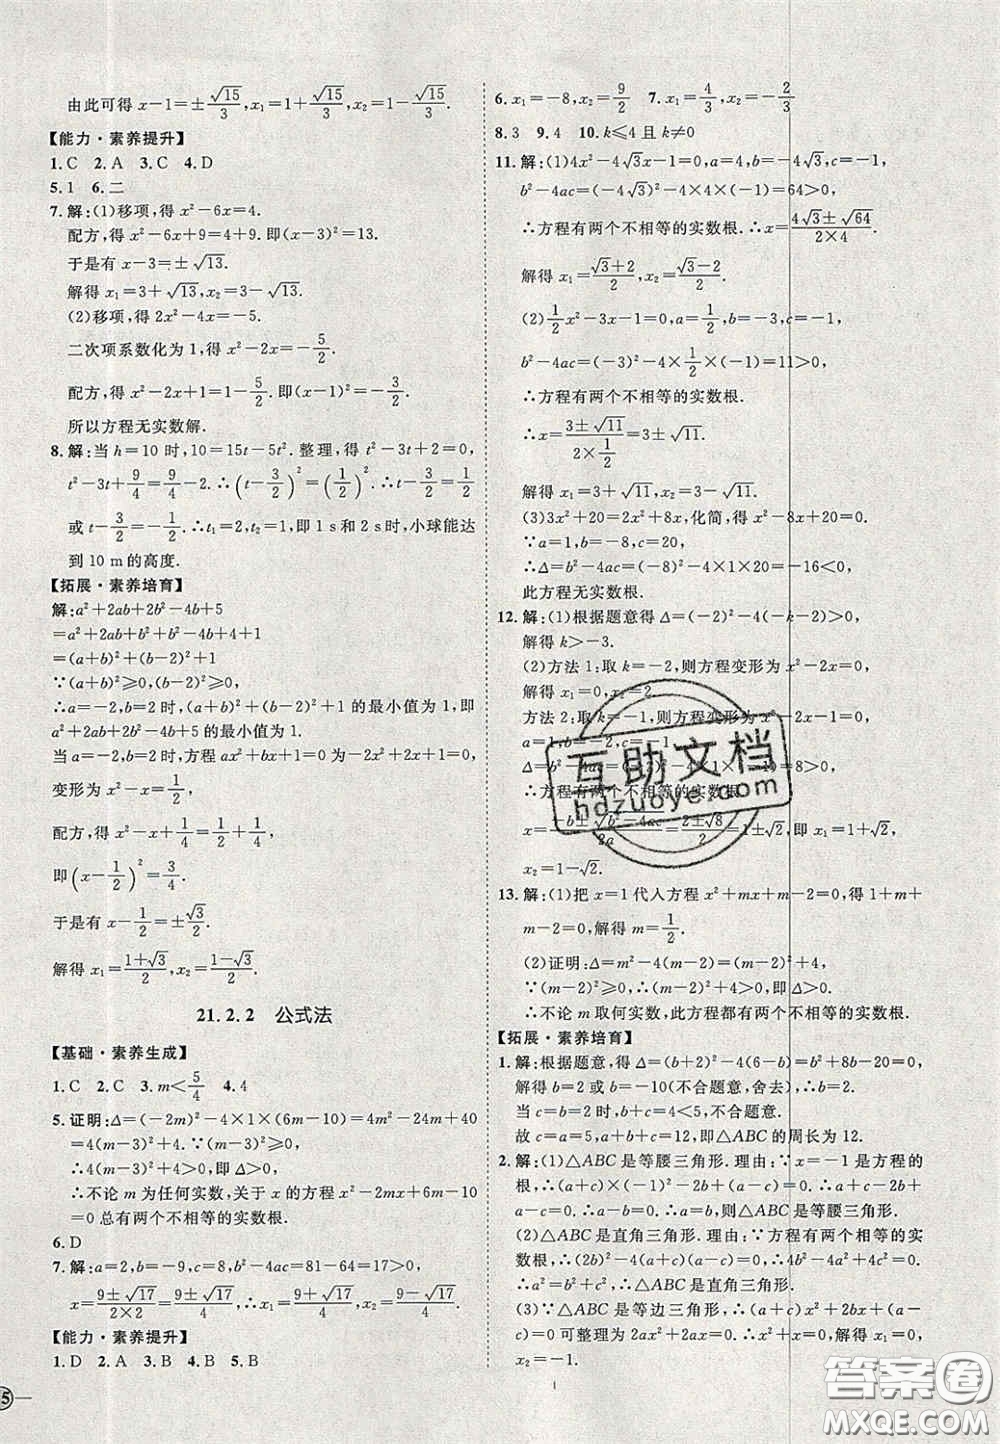 由此可得 x−1=±√15/3,x₁=1+√15/3,x₂=1−√15/3.
【能力·素养提升】
1.C 2.A 3.C 4.D
5.1 6.二
7.解:(1)移项,得 x²−6x=4.
配方,得 x²−6x+9=4+9.即(x−3)²=13.
于是有 x−3=±√13.
解得 x₁=3+√13,x₂=3−√13.
(2)移项,得 2x²−4x=−5.
二次项系数化为 1,得 x²−2x=−5/2.
配方,得 x²−2x+1=1−5/2.即(x−1)²=−3/2.
所以方程无实数解.
8.解:当 h=10 时,10=15t−5t².整理,得 t²−3t=−2,
t²−3t+9/4=9/4−2.∴(t−3/2)²=(1/2)².∴t−3/2=1/2
或 t−3/2=−1/2.∴t₁=2,t₂=1,即 1 s和 2 s时,小球能达
到 10 m的高度.
【拓展·素养培育】
解:a²+2ab+2b²−4b+5
=a²+2ab+b²+b²−4b+4+1
=(a+b)²+(b−2)²+1.
∵(a+b)²⩾0,(b−2)²⩾0,
∴a=−2,b=2时,(a+b)²+(b−2)²+1 的最小值为 1,即
a²+2ab+2b²−4b+5 的最小值为 1.
当 a=−2,b=2时,方程 ax²+bx+1=0 为−2x²+2x+1=0,
变形为 x²−x=1/2,
配方,得 x²−x+1/4=1/2+1/4,
即(x−1/2)²=3/4.
于是有 x−1/2=±√3/2.
解得 x₁=(1+√3)/2,x₂=(1−√3)/2.
21.2.2 公式法
【基础·素养生成】
1.C 2.C 3.m<5/4 4.4
5.证明:Δ=(−2m)²−4×1×(6m−10)=4m²−24m+40
=4(m−3)²+4.∵(m−3)²⩾0,
∴4(m−3)²+4>0,即Δ>0.
∴不论 m 为任何实数,关于 x 的方程 x²−2mx+6m−10
=0 总有两个不相等的实数根.
6.D
7.解:a=2,b=−9,c=8,b²−4ac=81−64=17>0.
x=(9±√17)/(2×2)=(9±√17)/4.∴x₁=(9+√17)/4,x₂=(9−√17)/4.
【能力·素养提升】
1.D 2.A 3.B 4.B 5.B
6.x₁=−8,x₂=9/2 7.x₁=4/3,x₂=−2/3
8.3 9.4 10.k⩽4 且 k≠0
11.解:(1)4x²−4√3x−1=0,a=4,b=−4√3,c=−1,
b²−4ac=(−4√3)²−4×4×(−1)=64>0,
∴方程有两个不相等的实数根.∴x=(4√3±√64)/(2×4).
解得 x₁=(√3+2)/2,x₂=(√3−2)/2.
(2)1/2x²−3x−1=0,a=1/2,b=−3,c=−1,
b²−4ac=(−3)²−4×1/2×(−1)=11>0,
∴方程有两个不相等的实数根.
∴x=(3±√11)/(2×1/2)=3±√11,
解得 x₁=3+√11,x₂=3−√11.
(3)3x²+20=2x²+8x,化简,得 x²−8x+20=0.
∵a=1,b=−8,c=20,
∴Δ=b²−4ac=(−8)²−4×1×20=−16<0,
此方程无实数根.
12.解:(1)根据题意得 Δ=(−2)²−4(−k−2)>0,
解得 k>−3.
(2)方法 1:取 k=−2,则方程变形为 x²−2x=0,
解得 x₁=0,x₂=2.
方法 2:取 k=−1,则方程变形为 x²−2x−1=0,
a=1,b=−2,c=−1,
∴Δ=b²−4ac=(−2)²−4×1×(−1)=8>0,
∴方程有两个不相等的实数根.
x=(−b±√(b²−4ac))/2a=(2±√8)/2=1±√2,即 x₁=1+√2,
x₂=1−√2.
13.解:(1)把 x=1 代入方程 x²+mx+m−2=0,得 1+m+
m−2=0,解得 m=1/2.
(2)证明:Δ=m²−4(m−2)=(m−2)²+4.
∵(m−2)²⩾0,∴(m−2)²+4>0,即Δ>0,
∴不论 m 取何实数,此方程都有两个不相等的实数根.
【拓展·素养培育】
1.解:根据题意,得 Δ=(b+2)²−4(6−b)=b²+8b−20=0,
解得 b=2 或 b=−10(不合题意,舍去),
当 c=b=2时,b+c=4<5,不合题意.
故 c=a=5,a+b+c=12,即△ABC 的周长为 12.
2.解:(1)△ABC 是等腰三角形.理由:∵x=−1 是方程的
根,∴(a+c)×(−1)²−2b+(a−c)=0,∴a+c−2b+
a−c=0,∴a−b=0,∴a=b,则△ABC 是等腰三角形.
(2)△ABC 是直角三角形.理由:∵方程有两个相等的实
数根,∴(2b)²−4(a+c)(a−c)=0,∴4b²−4a²+4c²=0,
∴a²=b²+c²,∴△ABC 是直角三角形.
(3)∵△ABC 是等边三角形,∴(a+c)x²+2bx+(a−c)
=0 可整理为 2ax²+2ax=0,∴x²+x=0,解得 x₁=0,
x₂=−1.
互助文档
hdzuoye.com
答案圈
MXQE.COM